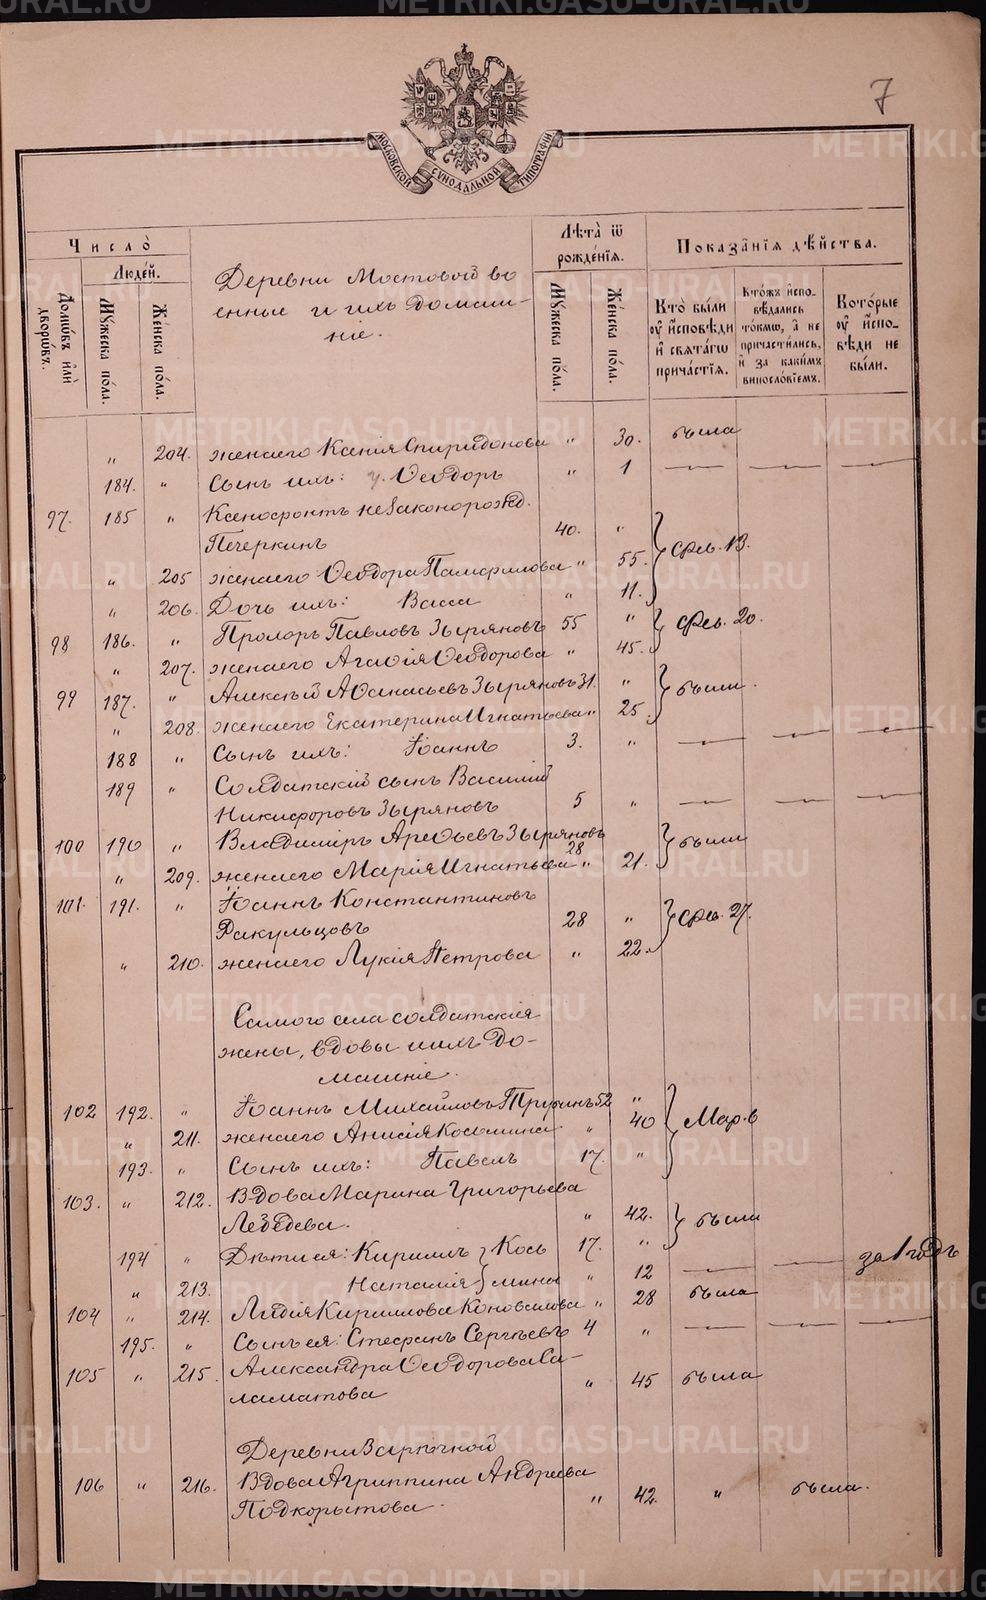 7
МОСКОВСКОЙ СѴНОДАЛЬНОЙ ТИПОГРАФІИ
Число̀
Людей.
Домѡвъ и҆лѝ дворѡвъ.
Мꙋжеска по́ла.
Же́нска по́ла.
Деревни Мостовой во
енные и ихъ домаш-
ніе.
Лѣта̀ ѿ рожде́нїѧ.
Мꙋжеска по́ла.
Же́нска по́ла.
Показа́нїѧ дѣ́йства.
Кто̀ бы́ли ᲂу҆ и҆сповѣди и҆ свѧта́гѡ прича́стїѧ.
Кто́жъ и҆спо- вѣдались то́кмѡ, а҆ не причасти́лись, и҆ за каки́мъ винослѡ́вїемъ.
Кото́рые ᲂу҆ и҆спо- вѣди не бы́ли.
" 204. жена его Ксенія Спиридонова " 30. была
184. " Сынъ ихъ: Ѳеодоръ " 1 — — —
97. 185 " Ксенофонтъ незаконорожд.
Печеркинъ 40. "
" 205 жена его Ѳеодора Памфилова " 55. Фев. 13.
" 206. Дочь ихъ: Васса " 11.
98 186. " Пролоръ Павловъ Зыряновъ 55 " Фев. 20.
" 207. жена его Агаѳія Ѳеодорова " 45.
99 187. " Алексѣй Аѳанасьевъ Зыряновъ 31. " были.
" 208. жена его Екатерина Игнатьева " 25.
188 " Сынъ ихъ: Іоаннъ 3. " — — —
189 " Солдатскій сынъ Василій
Никифоровъ Зыряновъ 5 " — — —
100 190 " Владиміръ Арефьевъ Зыряновъ 28 были
" 209. жена его Марія Игнатьева " 21.
101. 191. " Іоаннъ Константиновъ
Ракульцовъ 28 " Фев. 27.
" 210. жена его Лукія Петрова " 22.
Самого села солдатскія
жены, вдовы и ихъ до-
машніе.
102 192. " Іоаннъ Михайловъ 52 "
" 211. жена его Анисія Косьмина " 40 Мар. 6
193. " Сынъ ихъ: Павелъ 17. "
103. " 212. Вдова Марина Григорьева
Лебедева. " 42. были
194 " Дѣти ея: Кириллъ Кось 17. " за 1 годъ
" 213. Наталія мины " 12 — —
104 " 214. Лидія Кириллова Коновалова " 28 была
195. " Сынъ ея: Стефанъ Сергѣевъ 4 " — — —
105 " 215. Александра Ѳеодорова Са-
ламатова " 45 была
Деревни Зарѣчной
106 " 216. Вдова Агриппина Андреева
Подкорытова. " 42. " была.
METRIKI.GASO-URAL.RU